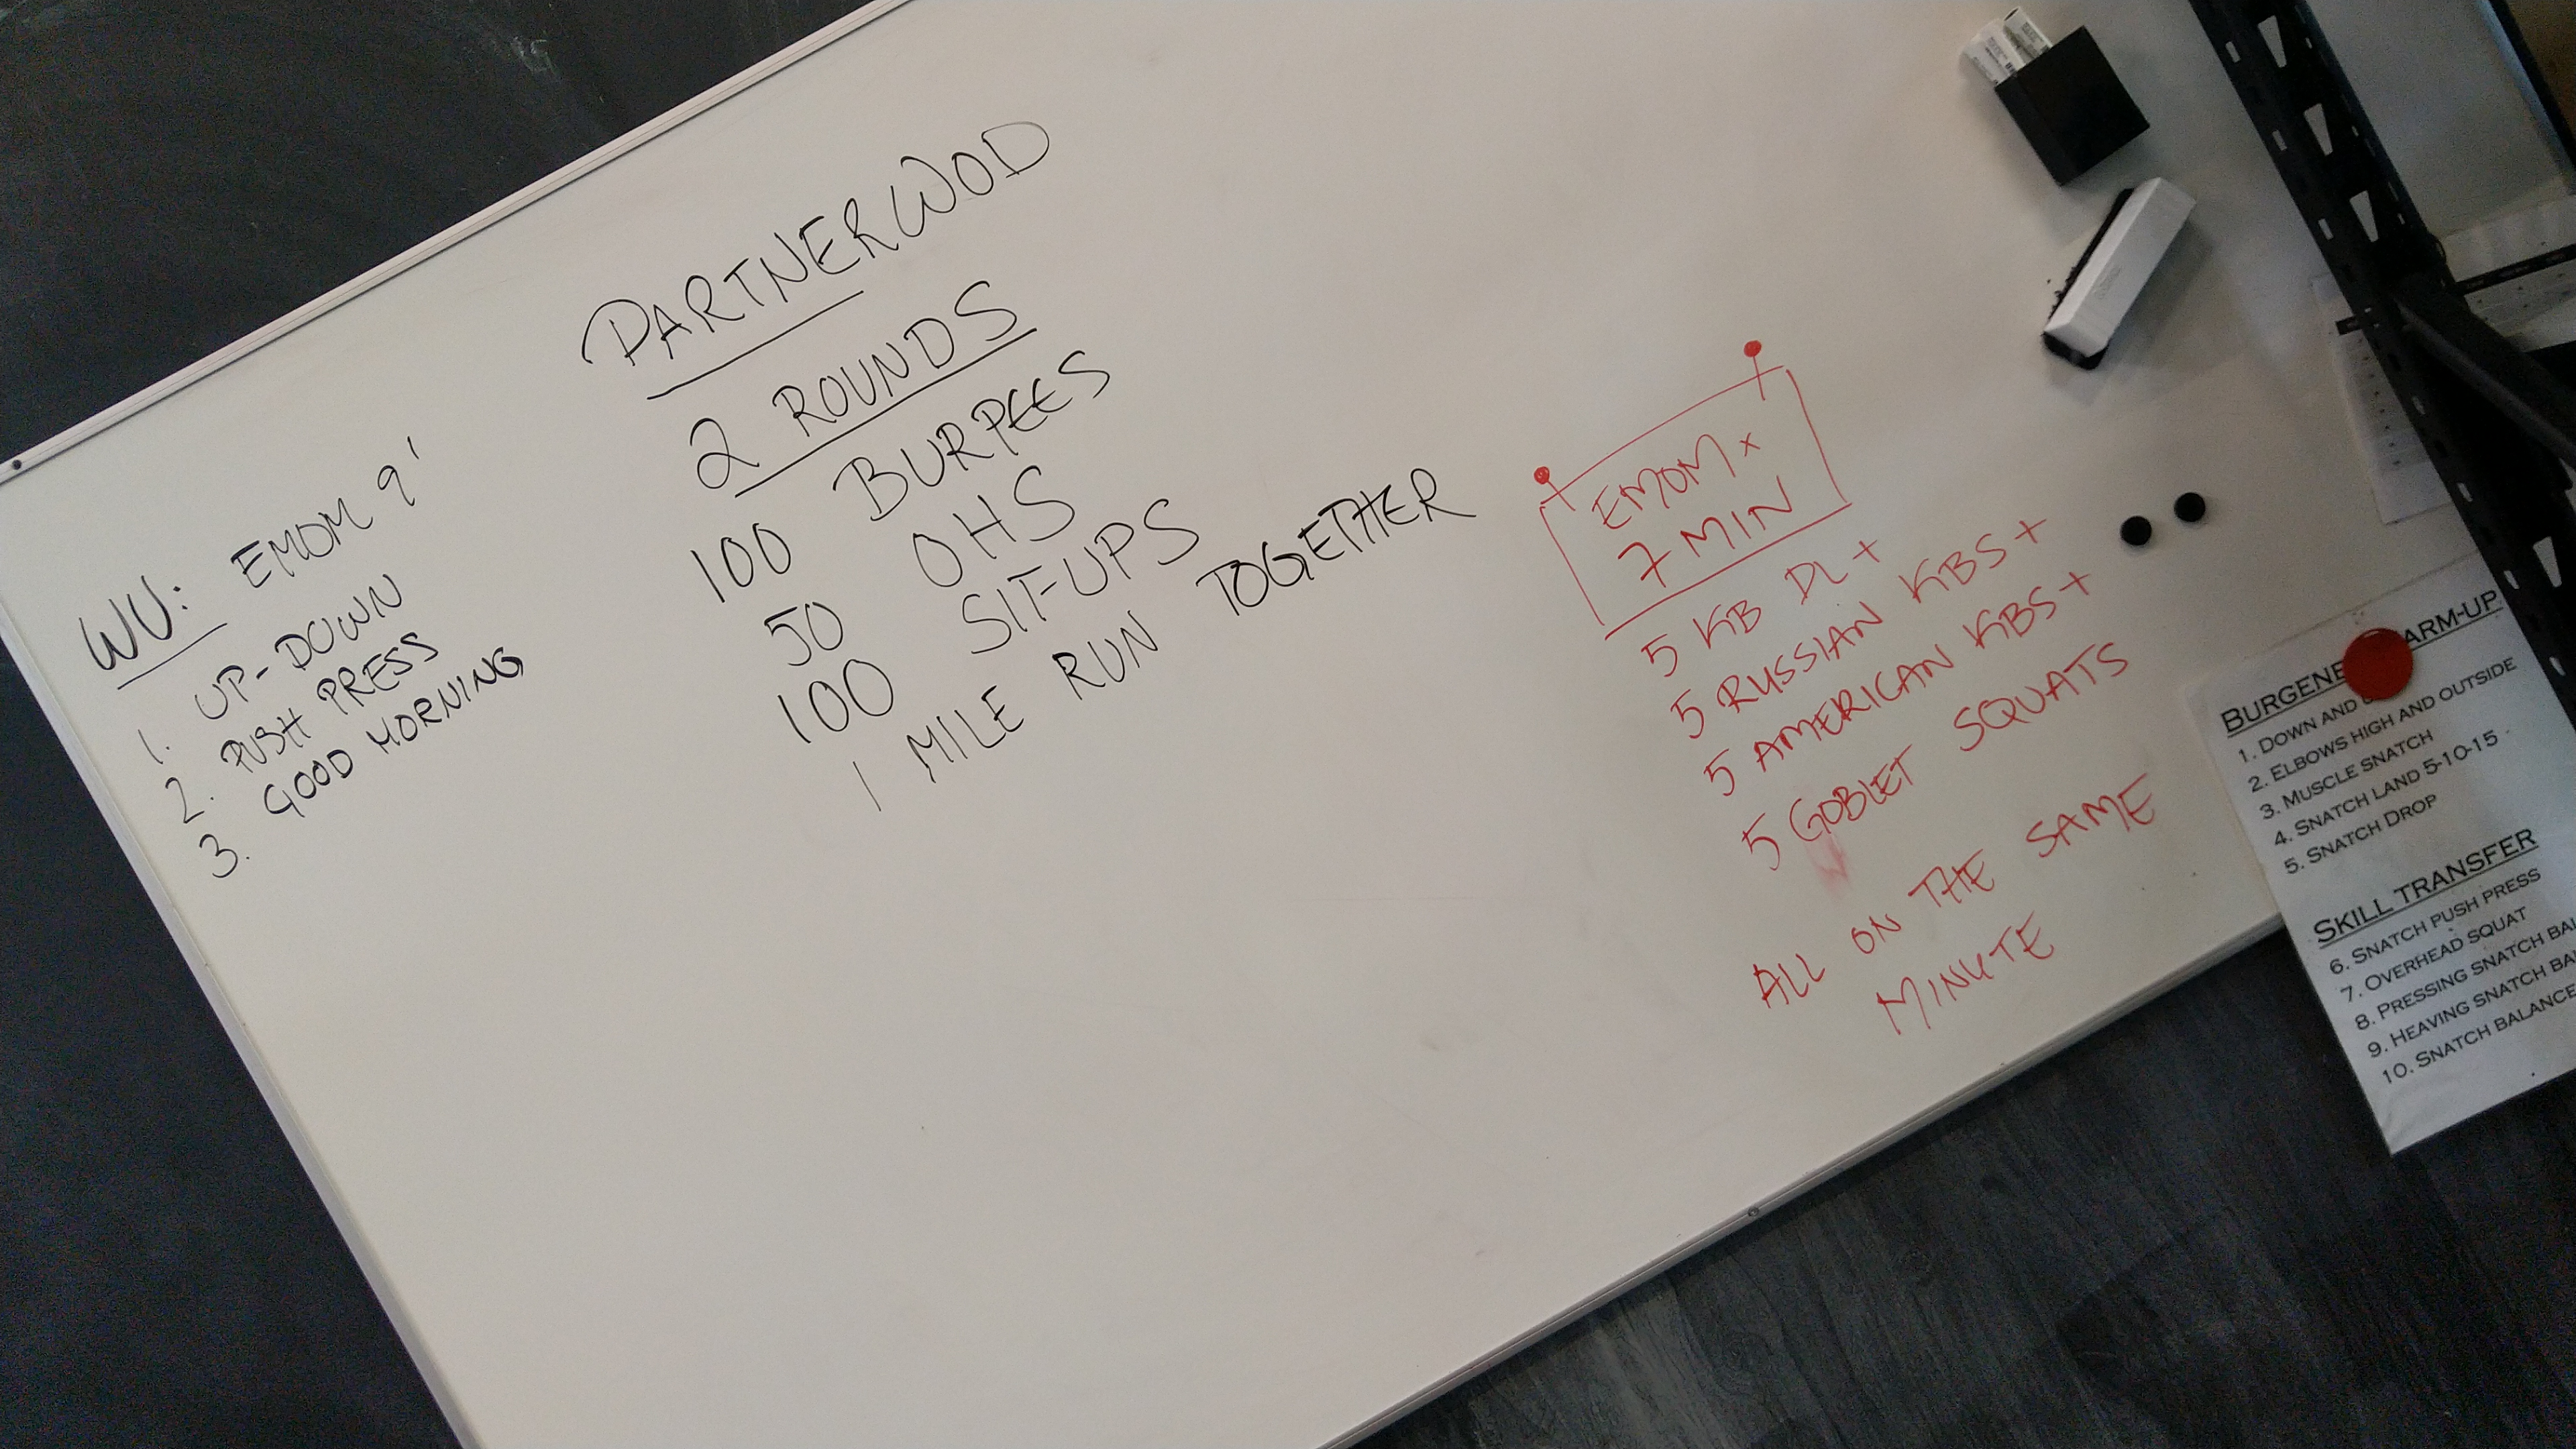 WU: EMOM 9'
1. UP-DOWN
2. PUSH PRESS
3. GOOD MORNING
PARTNER WOD
2 ROUNDS
100 BURPEES
50 OHS
100 SIT-UPS
1 MILE RUN TOGETHER
EMOM x
7 MIN
5 KB DL +
5 RUSSIAN KBS +
5 AMERICAN KBS +
5 GOBLET SQUATS
ALL ON THE SAME
MINUTE
1. DOWN AND
2. ELBOWS HIGH AND OUTSIDE
3. MUSCLE SNATCH
4. SNATCH LAND 5-10-15
5. SNATCH DROP
SKILL TRANSFER
6. SNATCH PUSH PRESS
7. OVERHEAD SQUAT
8. PRESSING SNATCH
9. HEAVING SNATCH
10. SNATCH BALANCE